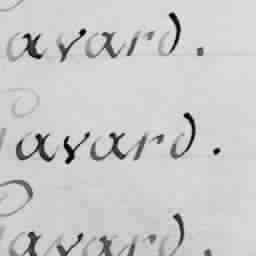 avard.
avard.
avard.